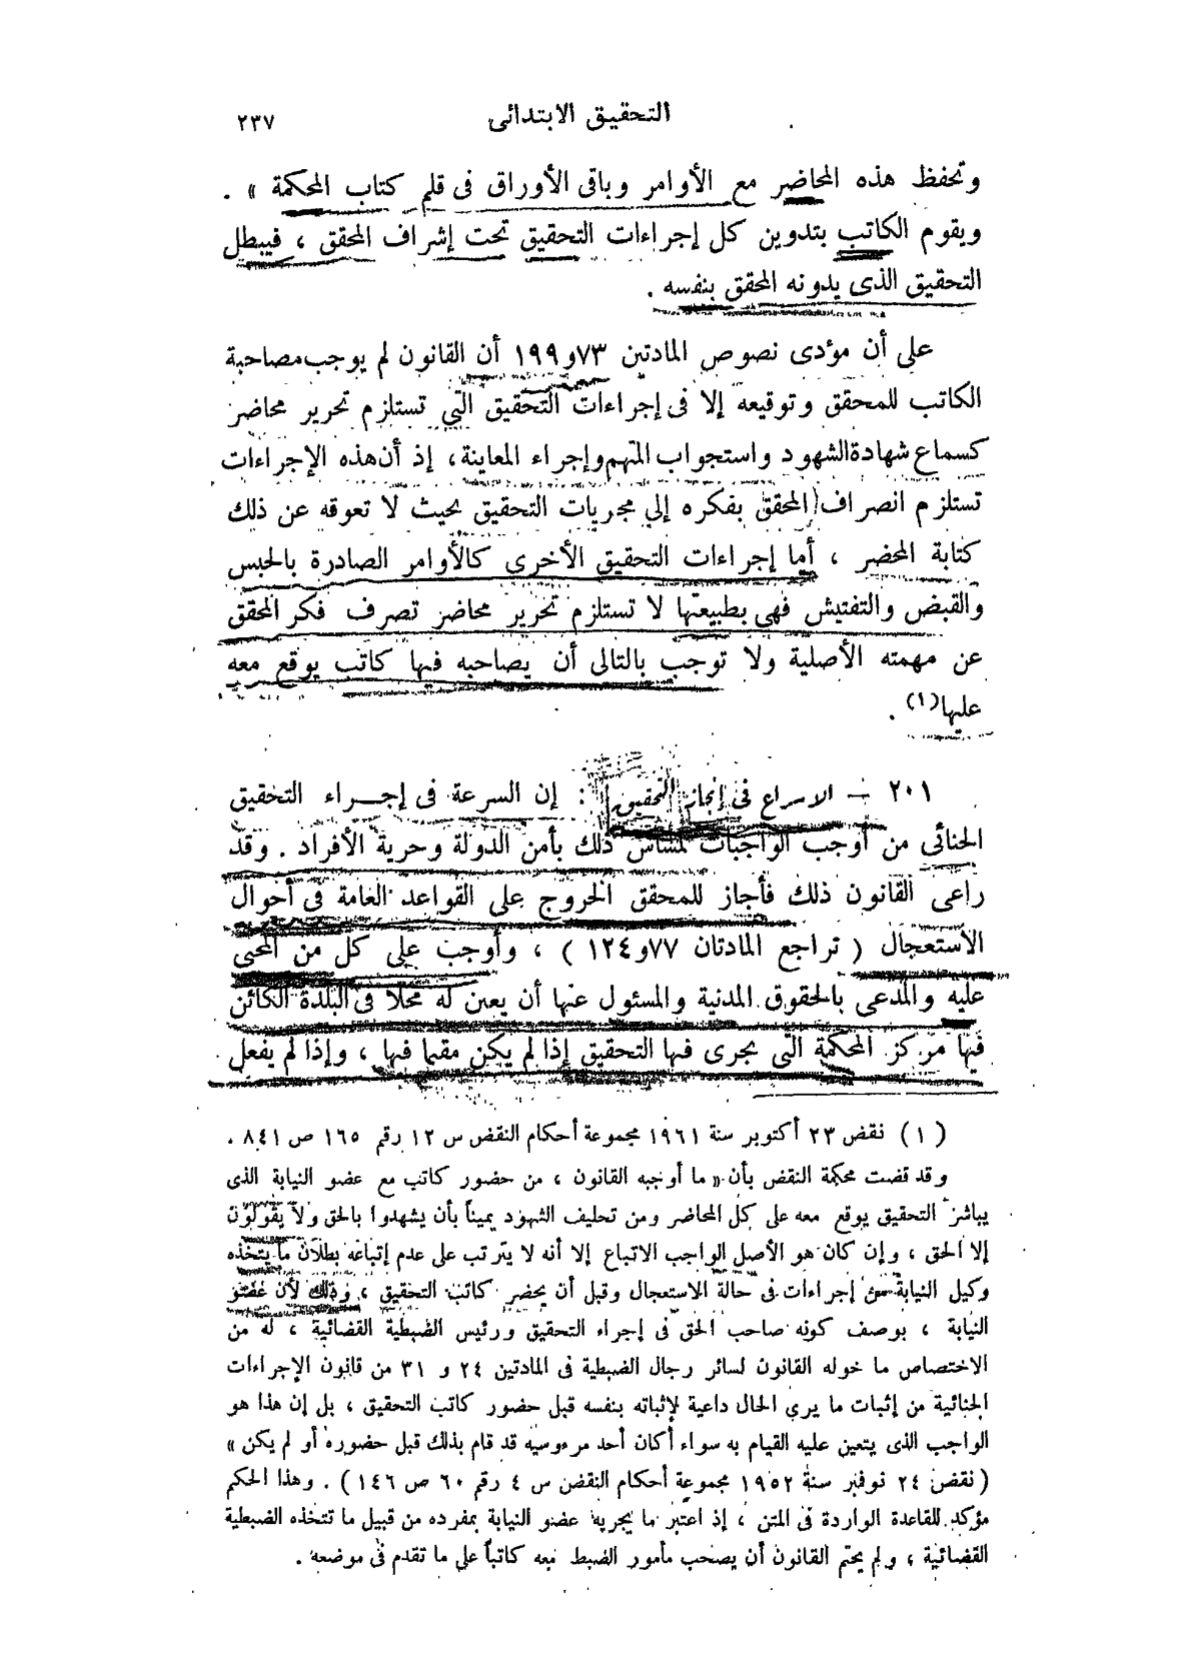 التحقيق الابتدائى ٢٣٧
وتحفظ هذه المحاضر مع الأوامر وباقى الأوراق فى قلم كتاب المحكمة » .
ويقوم الكاتب بتدوين كل إجراءات التحقيق تحت إشراف المحقق ، فيبطل
التحقيق الذى يدونه المحقق بنفسه .
على أن مؤدى نصوص المادتين ٧٣و١٩٩ أن القانون لم يوجب مصاحبة
الكاتب للمحقق وتوقيعه إلا فى إجراءات التحقيق التى تستلزم تحرير محاضر
كسماع شهادة الشهود واستجواب المتهم وإجراء المعاينة ، إذ أن هذه الإجراءات
تستلزم انصراف المحقق بفكره إلى مجريات التحقيق بحيث لا تعوقه عن ذلك
كتابة المحضر ، أما إجراءات التحقيق الأخرى كالأوامر الصادرة بالحبس
والقبض والتفتيش فهى بطبيعتها لا تستلزم تحرير محاضر تصرف فكر المحقق
عن مهمته الأصلية ولا توجب بالتالى أن يصاحبه فيها كاتب يوقع معه
عليها(١) .
٢٠١ – الاسراع فى إنجاز التحقيق : إن السرعة فى إجـــراء التحقيق
الجنائى من أوجب الواجبات لمساس ذلك بأمن الدولة وحرية الأفراد . وقد
راعى القانون ذلك فأجاز للمحقق الخروج على القواعد العامة فى أحوال
الاستعجال ( تراجع المادتان ٧٧و١٢٤ ) ، وأوجب على كل من المجنى
عليه والمدعى بالحقوق المدنية والمسئول عنها أن يعين له محلا فى البلدة الكائن
فيها مركز المحكمة التى يجرى فيها التحقيق إذا لم يكن مقيما فيها ، وإذا لم يفعل
(١) نقض ٢٣ أكتوبر سنة ١٩٦١ مجموعة أحكام النقض س ١٢ رقم ١٦٥ ص ٨٤١ .
وقد قضت محكمة النقض بأن « ما أوجبه القانون ، من حضور كاتب مع عضو النيابة الذى
يباشر التحقيق يوقع معه على كل المحاضر ومن تحليف الشهود يميناً بأن يشهدوا بالحق ولا يقولون
إلا الحق ، وإن كان هو الأصل الواجب الاتباع إلا أنه لا يترتب على عدم إتباعه بطلان ما يتخذه
وكيل النيابة من إجراءات فى حالة الاستعجال وقبل أن يحضر كاتب التحقيق ، وذلك لأن عضو
النيابة ، بوصف كونه صاحب الحق فى إجراء التحقيق ورئيس الضبطية القضائية ، له من
الاختصاص ما خوله القانون لسائر رجال الضبطية فى المادتين ٢٤ و ٣١ من قانون الإجراءات
الجنائية من إثبات ما يرى الحال داعية لإثباته بنفسه قبل حضور كاتب التحقيق ، بل إن هذا هو
الواجب الذى يتعين عليه القيام به سواء أكان أحد مرءوسيه قد قام بذلك قبل حضوره أو لم يكن »
( نقض ٢٤ نوفمبر سنة ١٩٥٢ مجموعة أحكام النقض س ٤ رقم ٦٠ ص ١٤٦ ) . وهذا الحكم
مؤكد للقاعدة الواردة فى المتن ، إذ اعتبر ما يجريه عضو النيابة بمفرده من قبيل ما تتخذه الضبطية
القضائية ، ولم يحتم القانون أن يصحب مأمور الضبط معه كاتباً على ما تقدم فى موضعه .